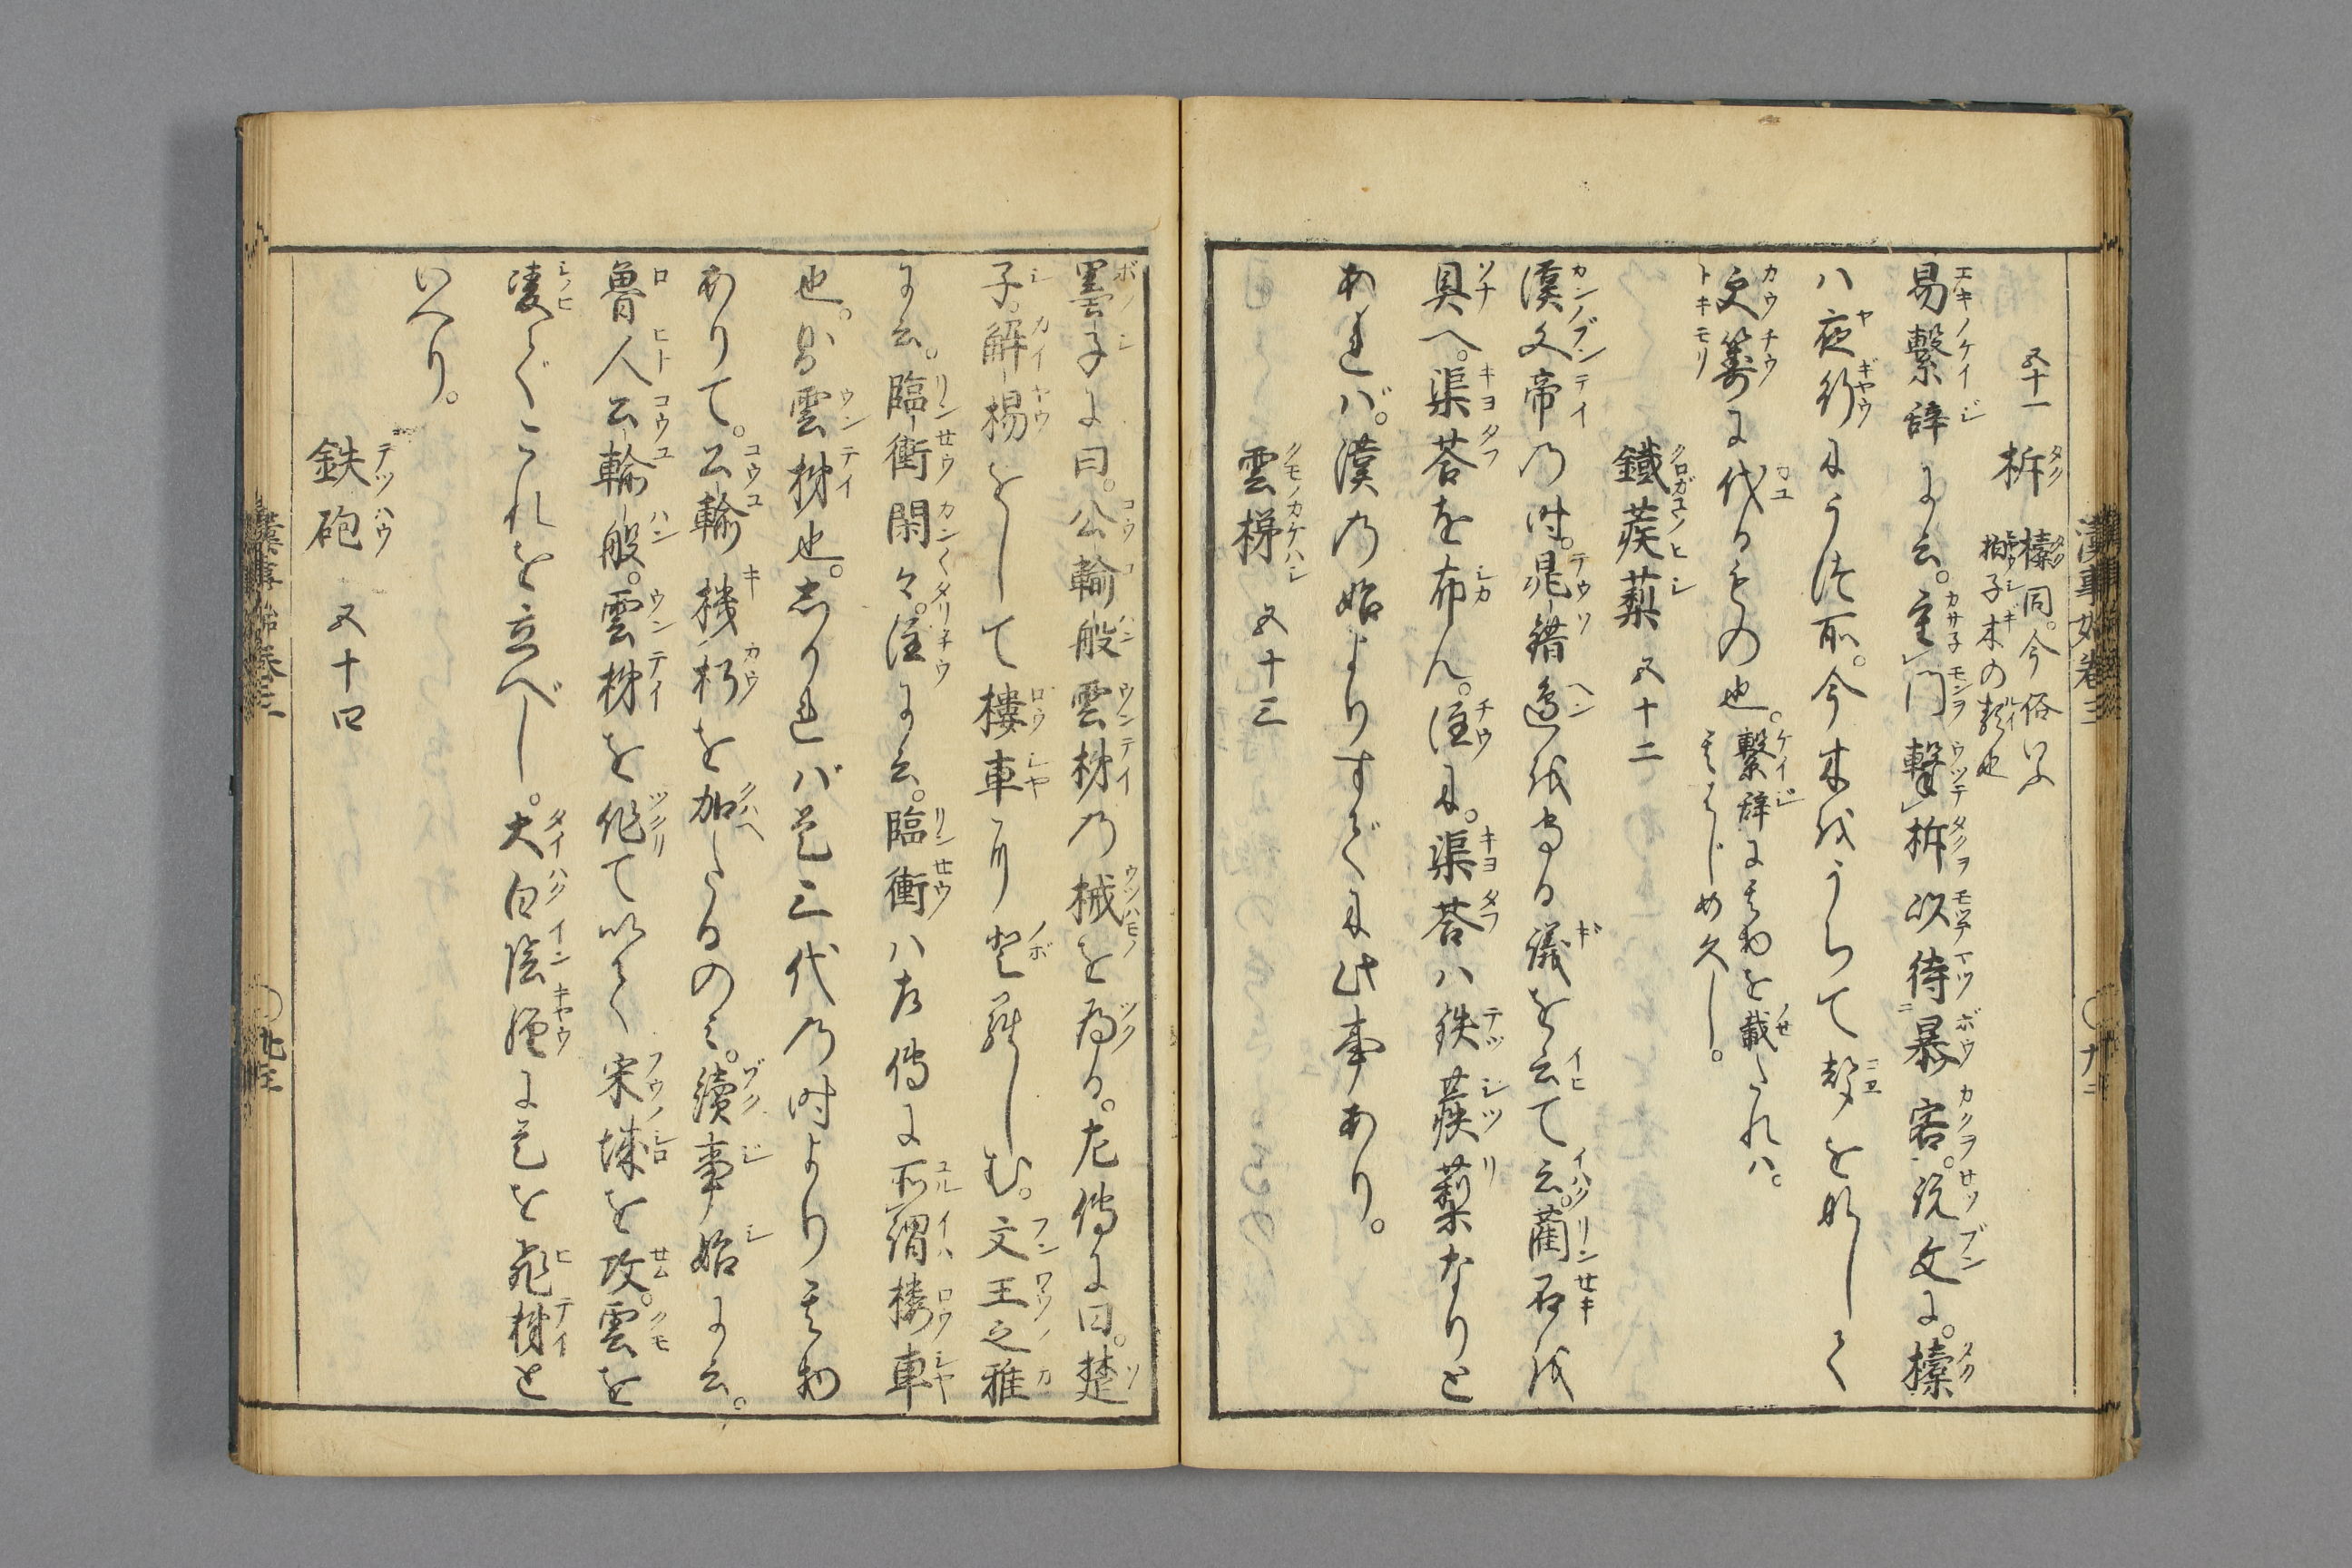 五十一 柝 㯓同。今俗いふ
拍子木の類也
易繫辞に云。重門擊柝以待暴客。説文に。㯓
ハ夜行にうつ所。今木をうちて声をなして
更籌に代るもの也。繫辞に其物を載たれハ。
其はじめ久し。
鐵蒺䔧 五十二
漢文帝の時。晁錯邉を守る議を云て云。藺石を
具へ。渠荅を布ん。注に。渠荅ハ鉄蒺䔧なりと
あれバ。漢の始よりすでに此事あり。
雲梯 五十三
墨子に曰。公輸般雲梯の械を為る。左傳に曰。楚
子。解楊をして樓車に登らしむ。文王之雅
に云。臨衝閑々。注に云。臨衝ハ左傳に所謂楼車
也。即雲梯也。しかれバ是三代の時より其物
ありて。公輸機朽を加たるのミ。續事始に云。
魯人公輸般。雲梯を作て以て宋城を攻。雲を
凌ぐこれを立べし。太白陰經に是を飛梯と
いへり。
鉄砲 五十四
漢事始巻三